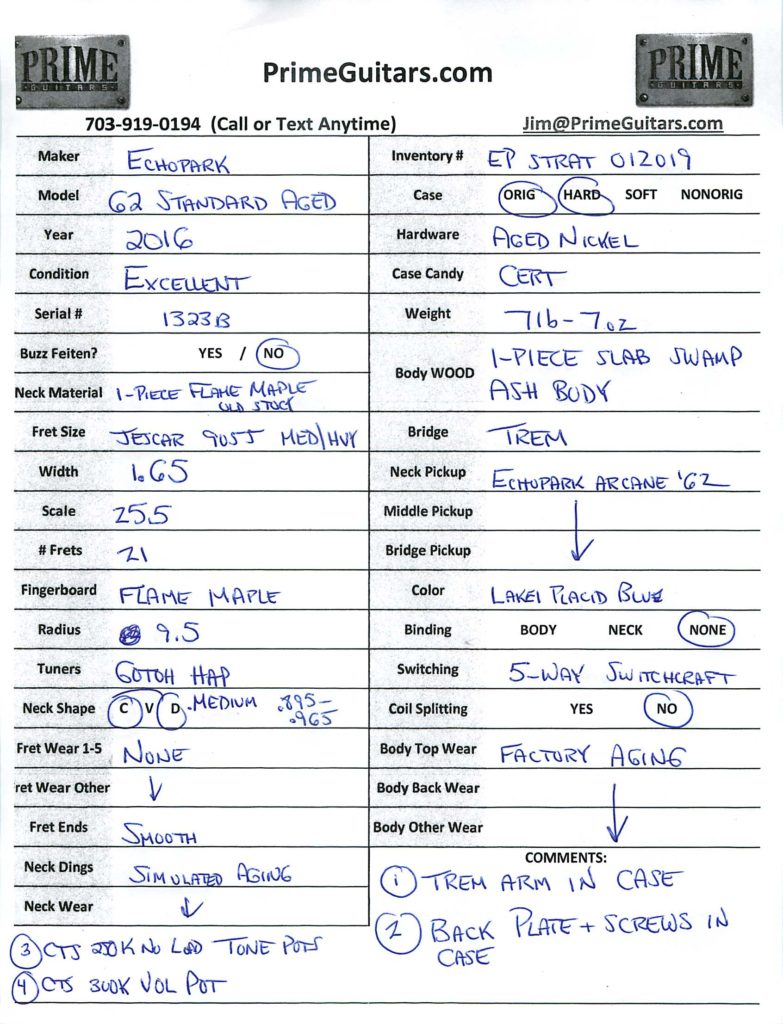 PRIME
GUITARS
PrimeGuitars.com
PRIME
GUITARS
703-919-0194 (Call or Text Anytime)
Jim@PrimeGuitars.com
Maker ECHOPARK
Model 62 STANDARD AGED
Year 2016
Condition EXCELLENT
Serial # 1323B
Buzz Feiten? YES / NO
Neck Material 1-PIECE FLAME MAPLE
OLD STOCK
Fret Size JESCAR 9055 MED/HVY
Width 1.65
Scale 25.5
# Frets 21
Fingerboard FLAME MAPLE
Radius 9.5
Tuners GOTOH HAP
Neck Shape C V D .MEDIUM .895-
.965
Fret Wear 1-5 NONE
ret Wear Other ↓
Fret Ends SMOOTH
Neck Dings SIMULATED AGING
Neck Wear ↓
3 CTS 250K NO LOAD TONE POTS
4 CTS 300K VOL POT
Inventory # EP STRAT 012019
Case ORIG HARD SOFT NONORIG
Hardware AGED NICKEL
Case Candy CERT
Weight 7lb-7oz
Body WOOD 1-PIECE SLAB SWAMP
ASH BODY
Bridge TREM
Neck Pickup ECHOPARK ARCANE '62
Middle Pickup
Bridge Pickup ↓
Color LAKE PLACID BLUE
Binding BODY NECK NONE
Switching 5-WAY SWITCHCRAFT
Coil Splitting YES NO
Body Top Wear FACTORY AGING
Body Back Wear
Body Other Wear ↓
COMMENTS:
1 TREM ARM IN CASE
2 BACK PLATE + SCREWS IN
CASE